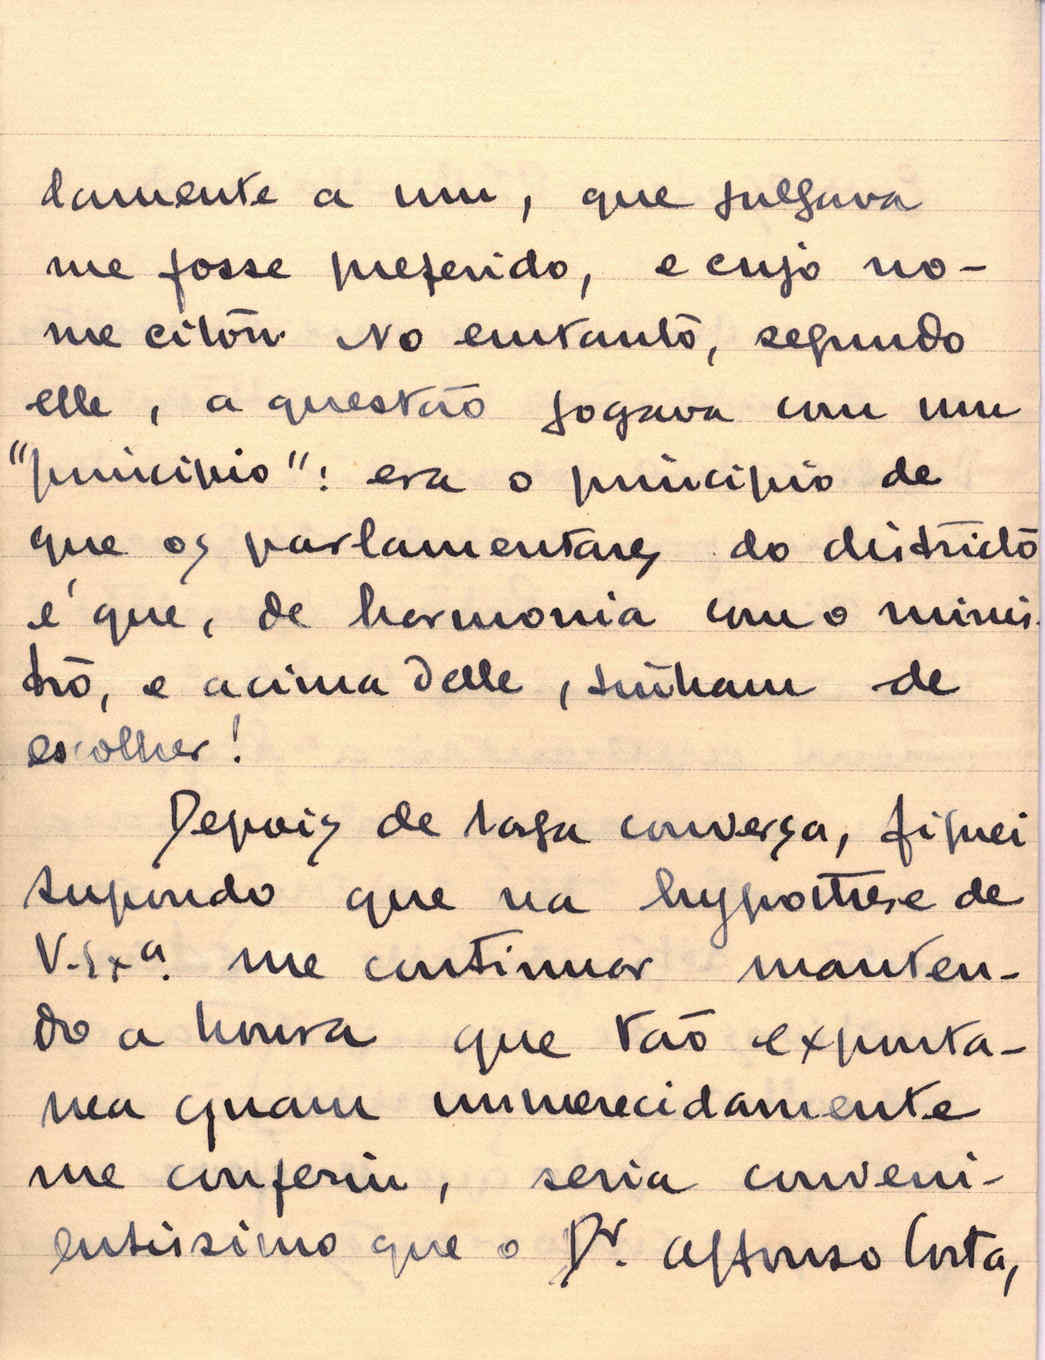 damente a um, que julgava
me fosse preferido, e cujo no-
me citou. No emtanto, segundo
elle, a questão jogava com um
"principio": era o principio de
que os parlamentares do districto
é que, de harmonia com o minis-
tro, e acima delle, tinham de
escolher!
Depois de larga conversa, fiquei
supondo que na hypothese de
V. Exª. me continuar manten-
do a honra que tão exponta-
nea quam immerecidamente
me conferiu, seria conveni-
entissimo que o Dr. Affonso Costa,